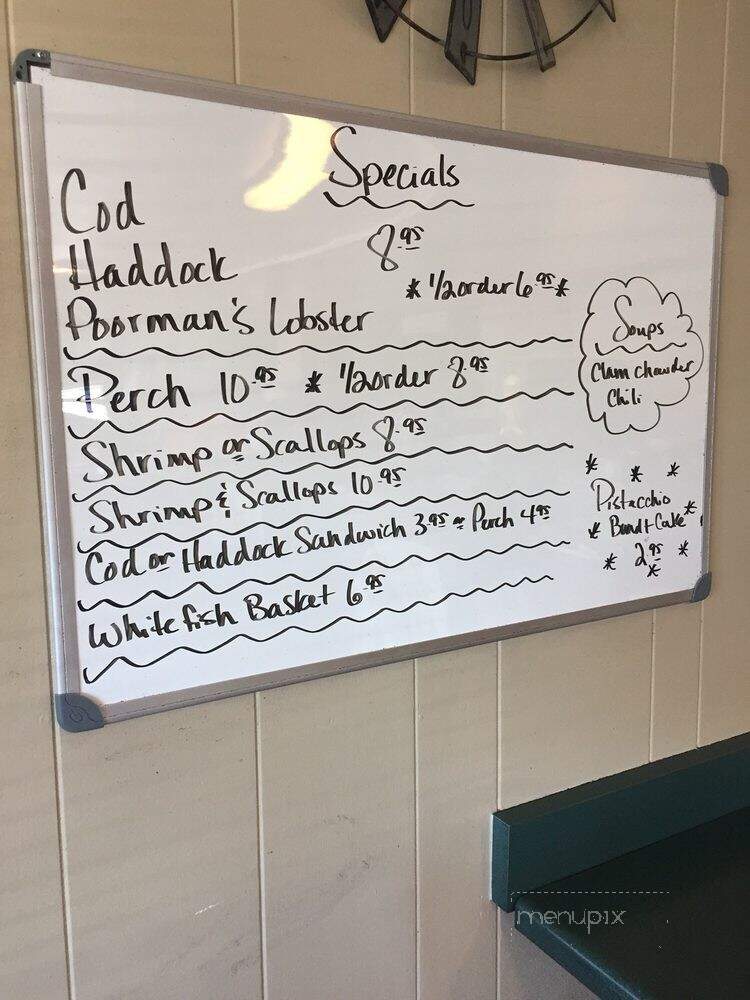 Specials
Cod
Haddock 8.95
Poorman's Lobster * 1/2 order 6.95 *
Perch 10.95 * 1/2 order 8.95
Shrimp or Scallops 8.95
Shrimp & Scallops 10.95
Cod or Haddock Sandwich 3.95 or Perch 4.95
Whitefish Basket 6.95
Soups
Clam chowder
Chili
* * *
Pistacchio
* Bundt Cake *
* 2.95 *
*
menupix